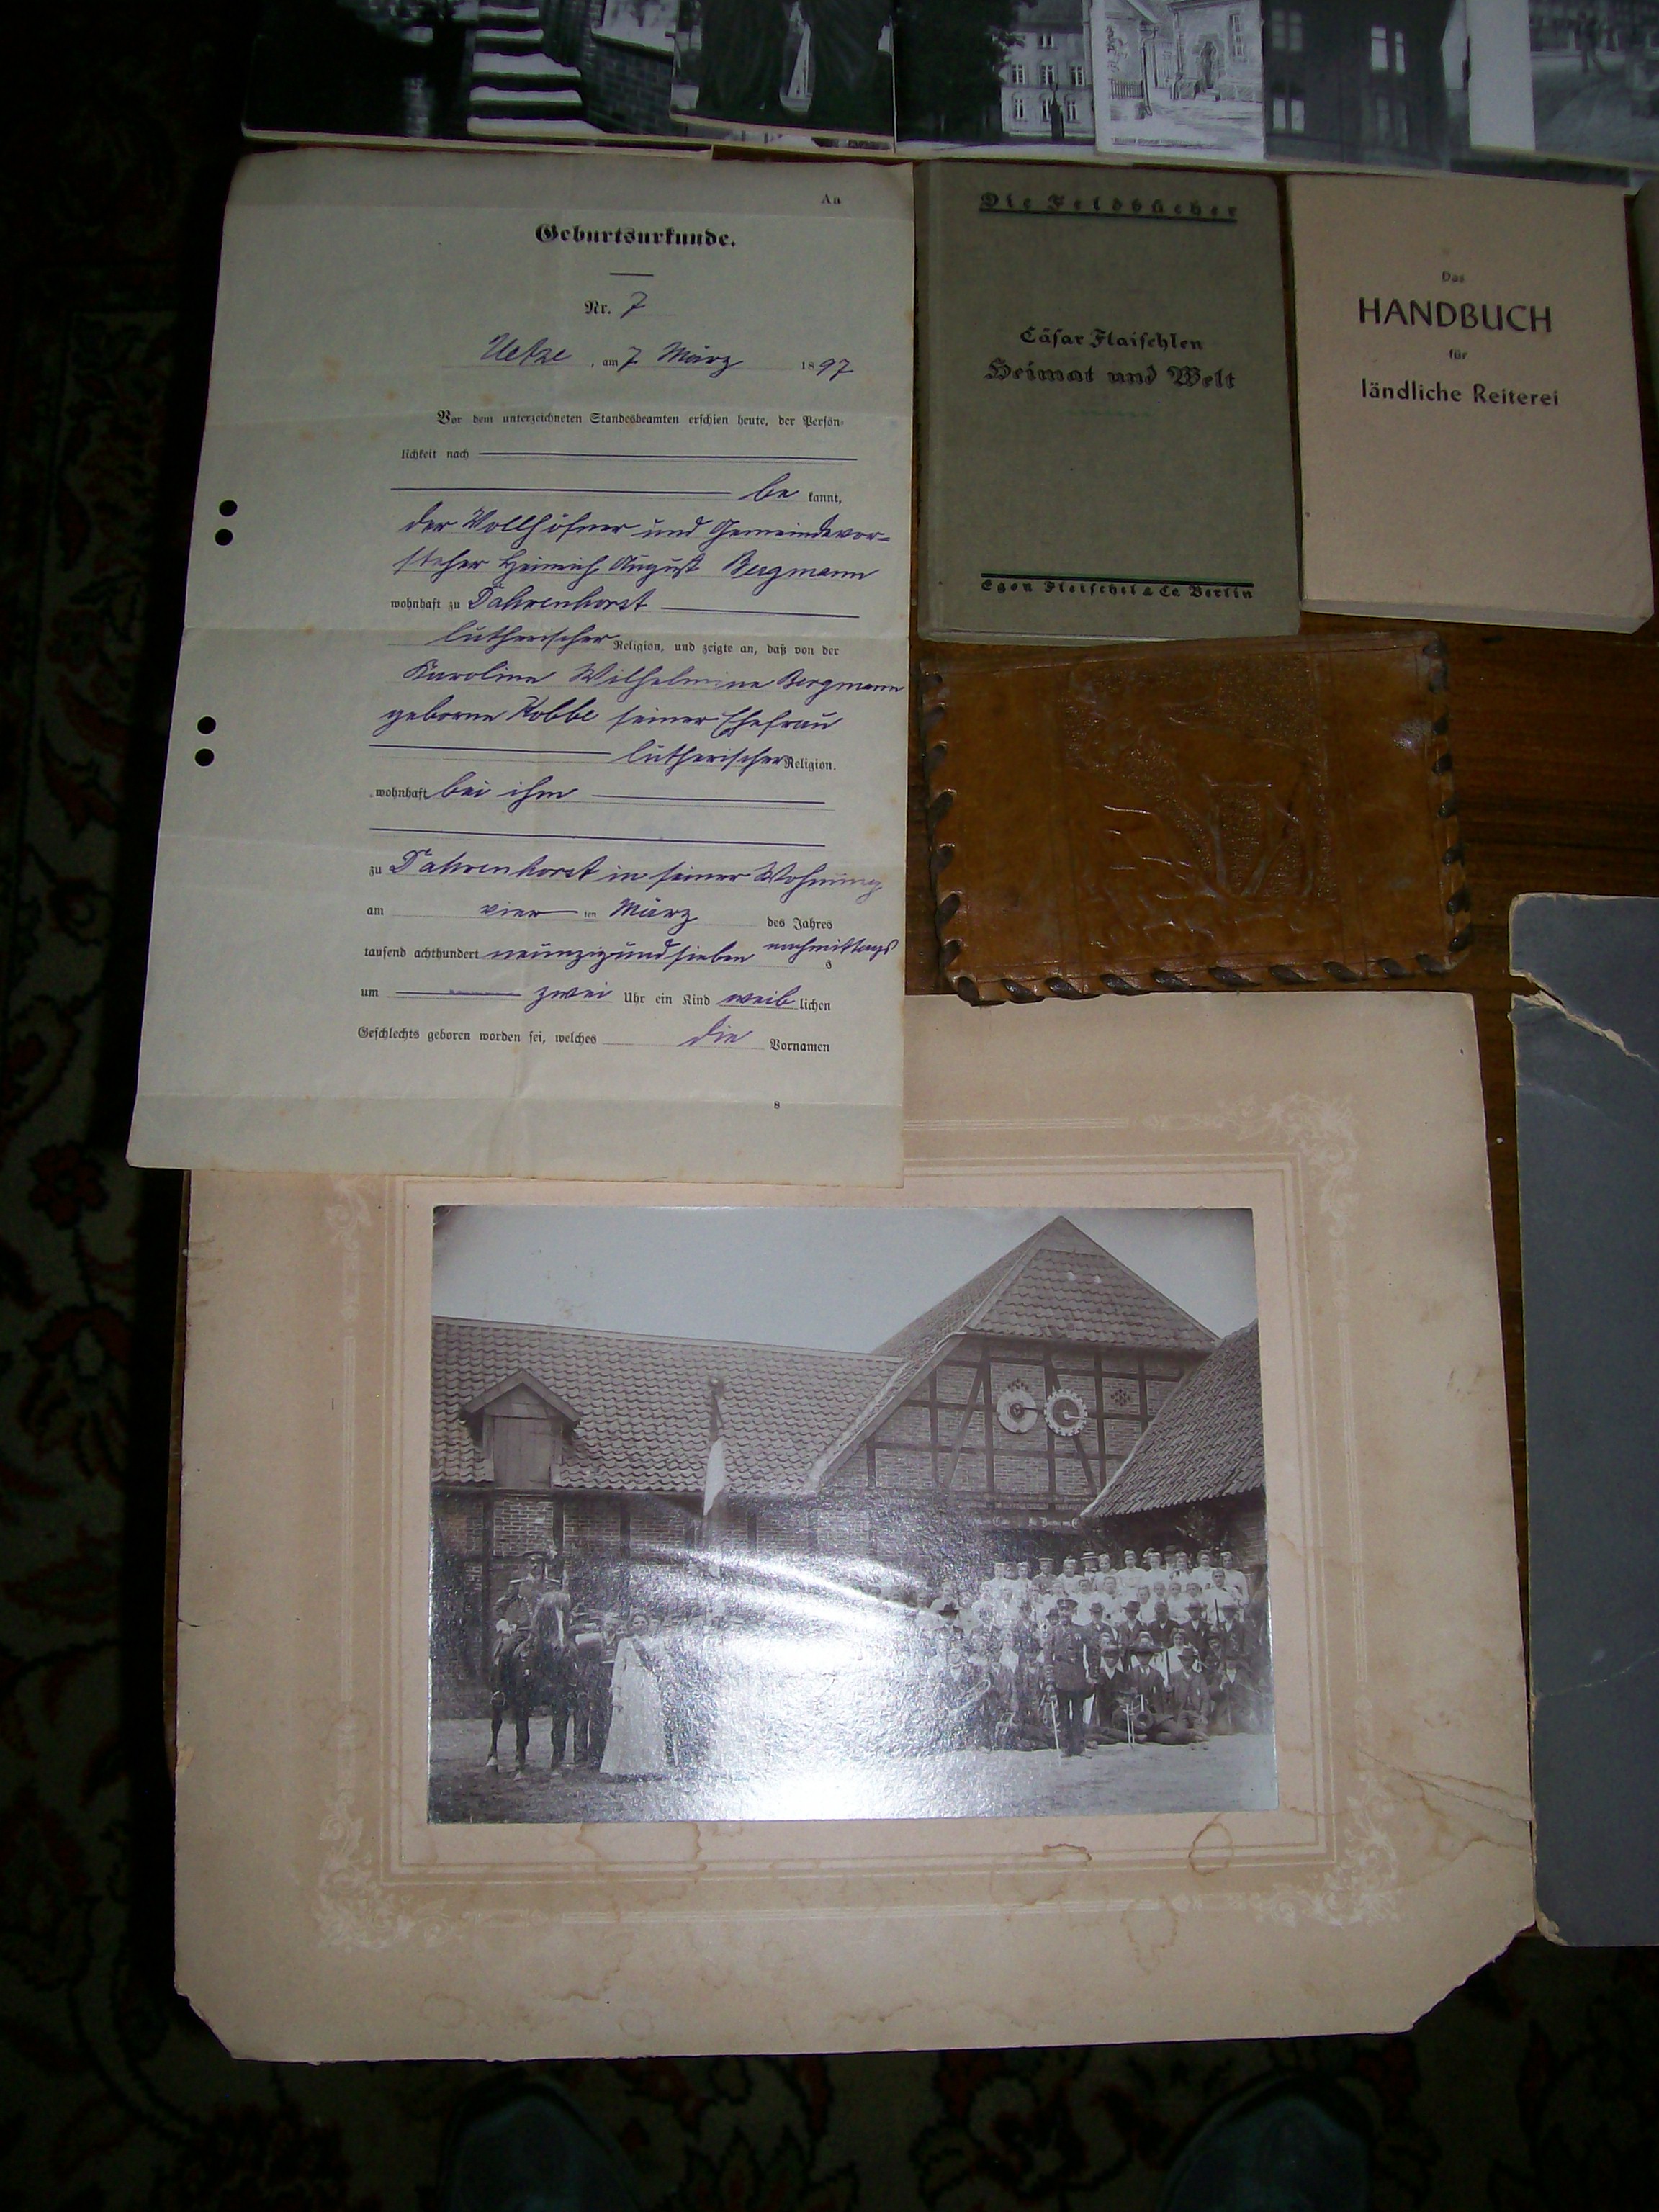 Aa
Geburtsurkunde.
Nr. 7
Uetze, am 7. März 1897
Vor dem unterzeichneten Standesbeamten erschien heute, der Persön-
lichkeit nach
be kannt,
der Vollhöfner und Gemeindevor-
steher Heinrich August Bergmann
wohnhaft zu Dahrenhorst
lutherischer Religion, und zeigte an, daß von der
Karoline Wilhelmine Bergmann
geborne Kobbe seiner Ehefrau
lutherischer Religion.
wohnhaft bei ihm
zu Dahrenhorst in seiner Wohnung
am vier ten März des Jahres
tausend achthundert neunzig und sieben nachmittags
um zwei Uhr ein Kind weib lichen
Geschlechts geboren worden sei, welches die Vornamen
8
Die Feldbücher
Cäsar Flaischlen
Heimat und Welt
Egon Fleischel & Co Berlin
Das
HANDBUCH
für
ländliche Reiterei